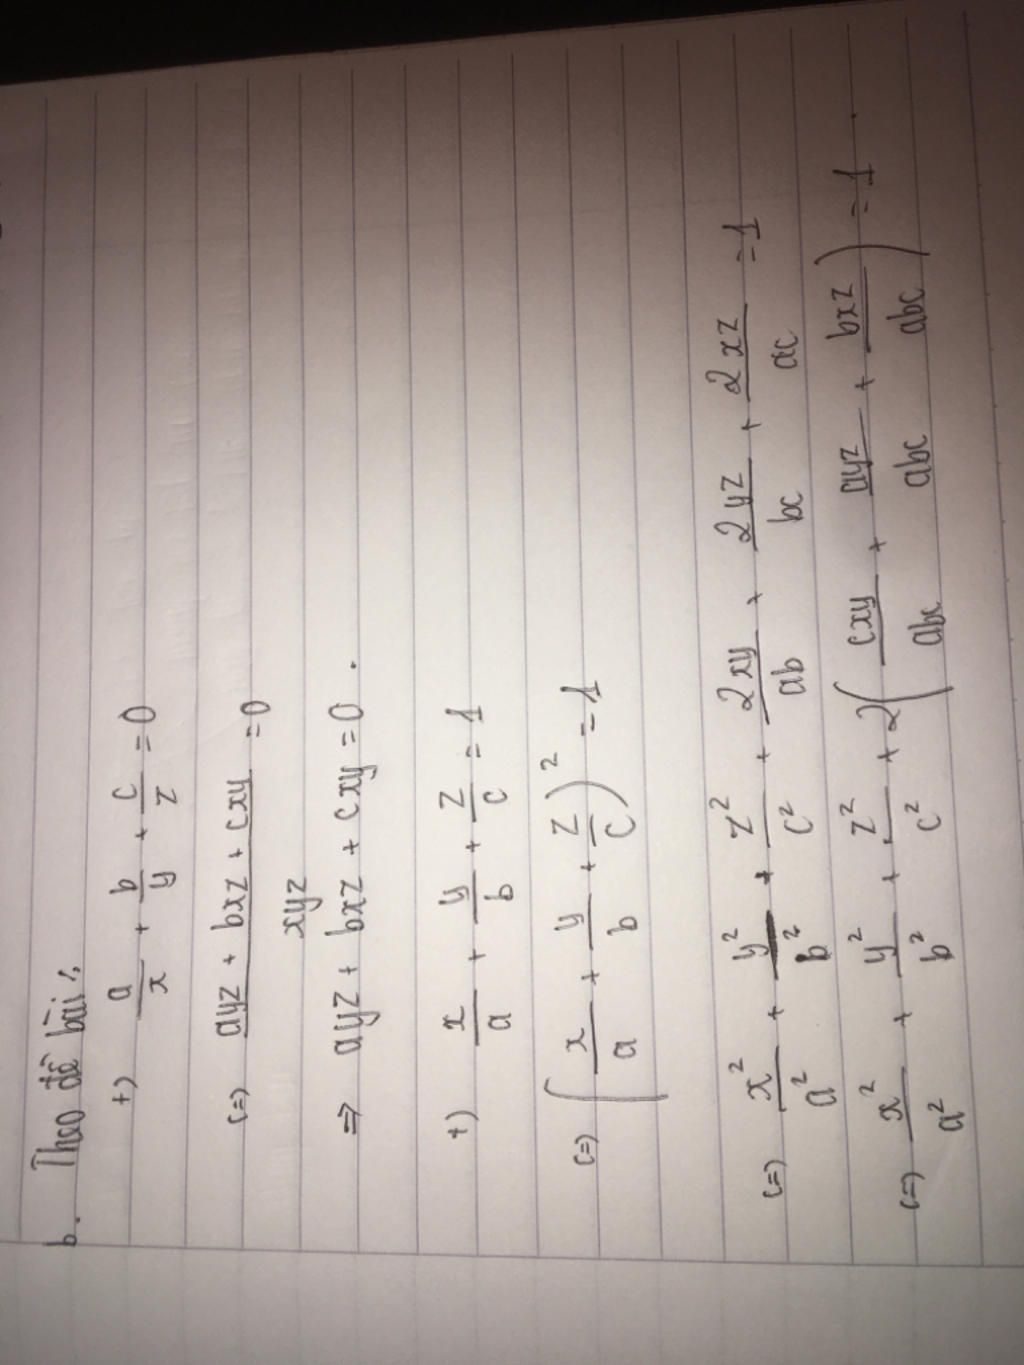 b. Theo đề bài:
+) a/x + b/y + c/z = 0
(=) (ayz + bxz + cxy)/xyz = 0
⇒ ayz + bxz + cxy = 0.
+) x/a + y/b + z/c = 1
(=) (x/a + y/b + z/c)² = 1
(=) x²/a² + y²/b² + z²/c² + 2xy/ab + 2yz/bc + 2xz/ac = 1
(=) x²/a² + y²/b² + z²/c² + 2(cxy/abc + ayz/abc + bxz/abc) = 1.